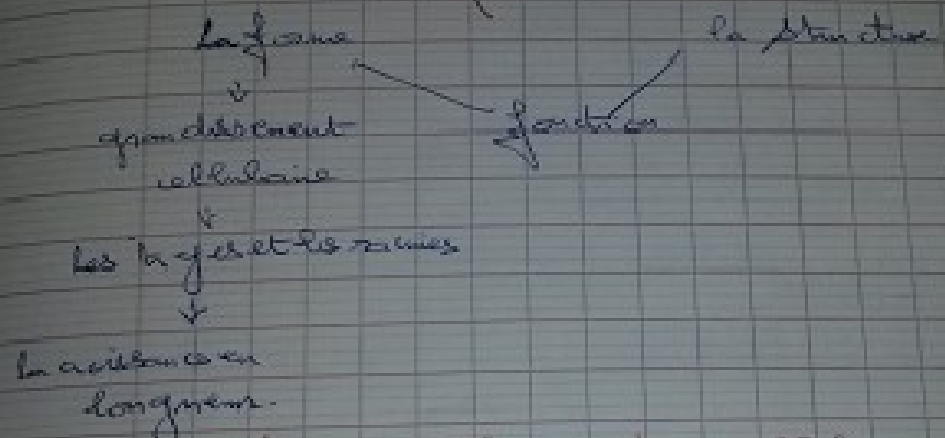 La forme
la structure
fonction
grandissement
cellulaire
Les tiges et les racines
La croissance en
longueur.